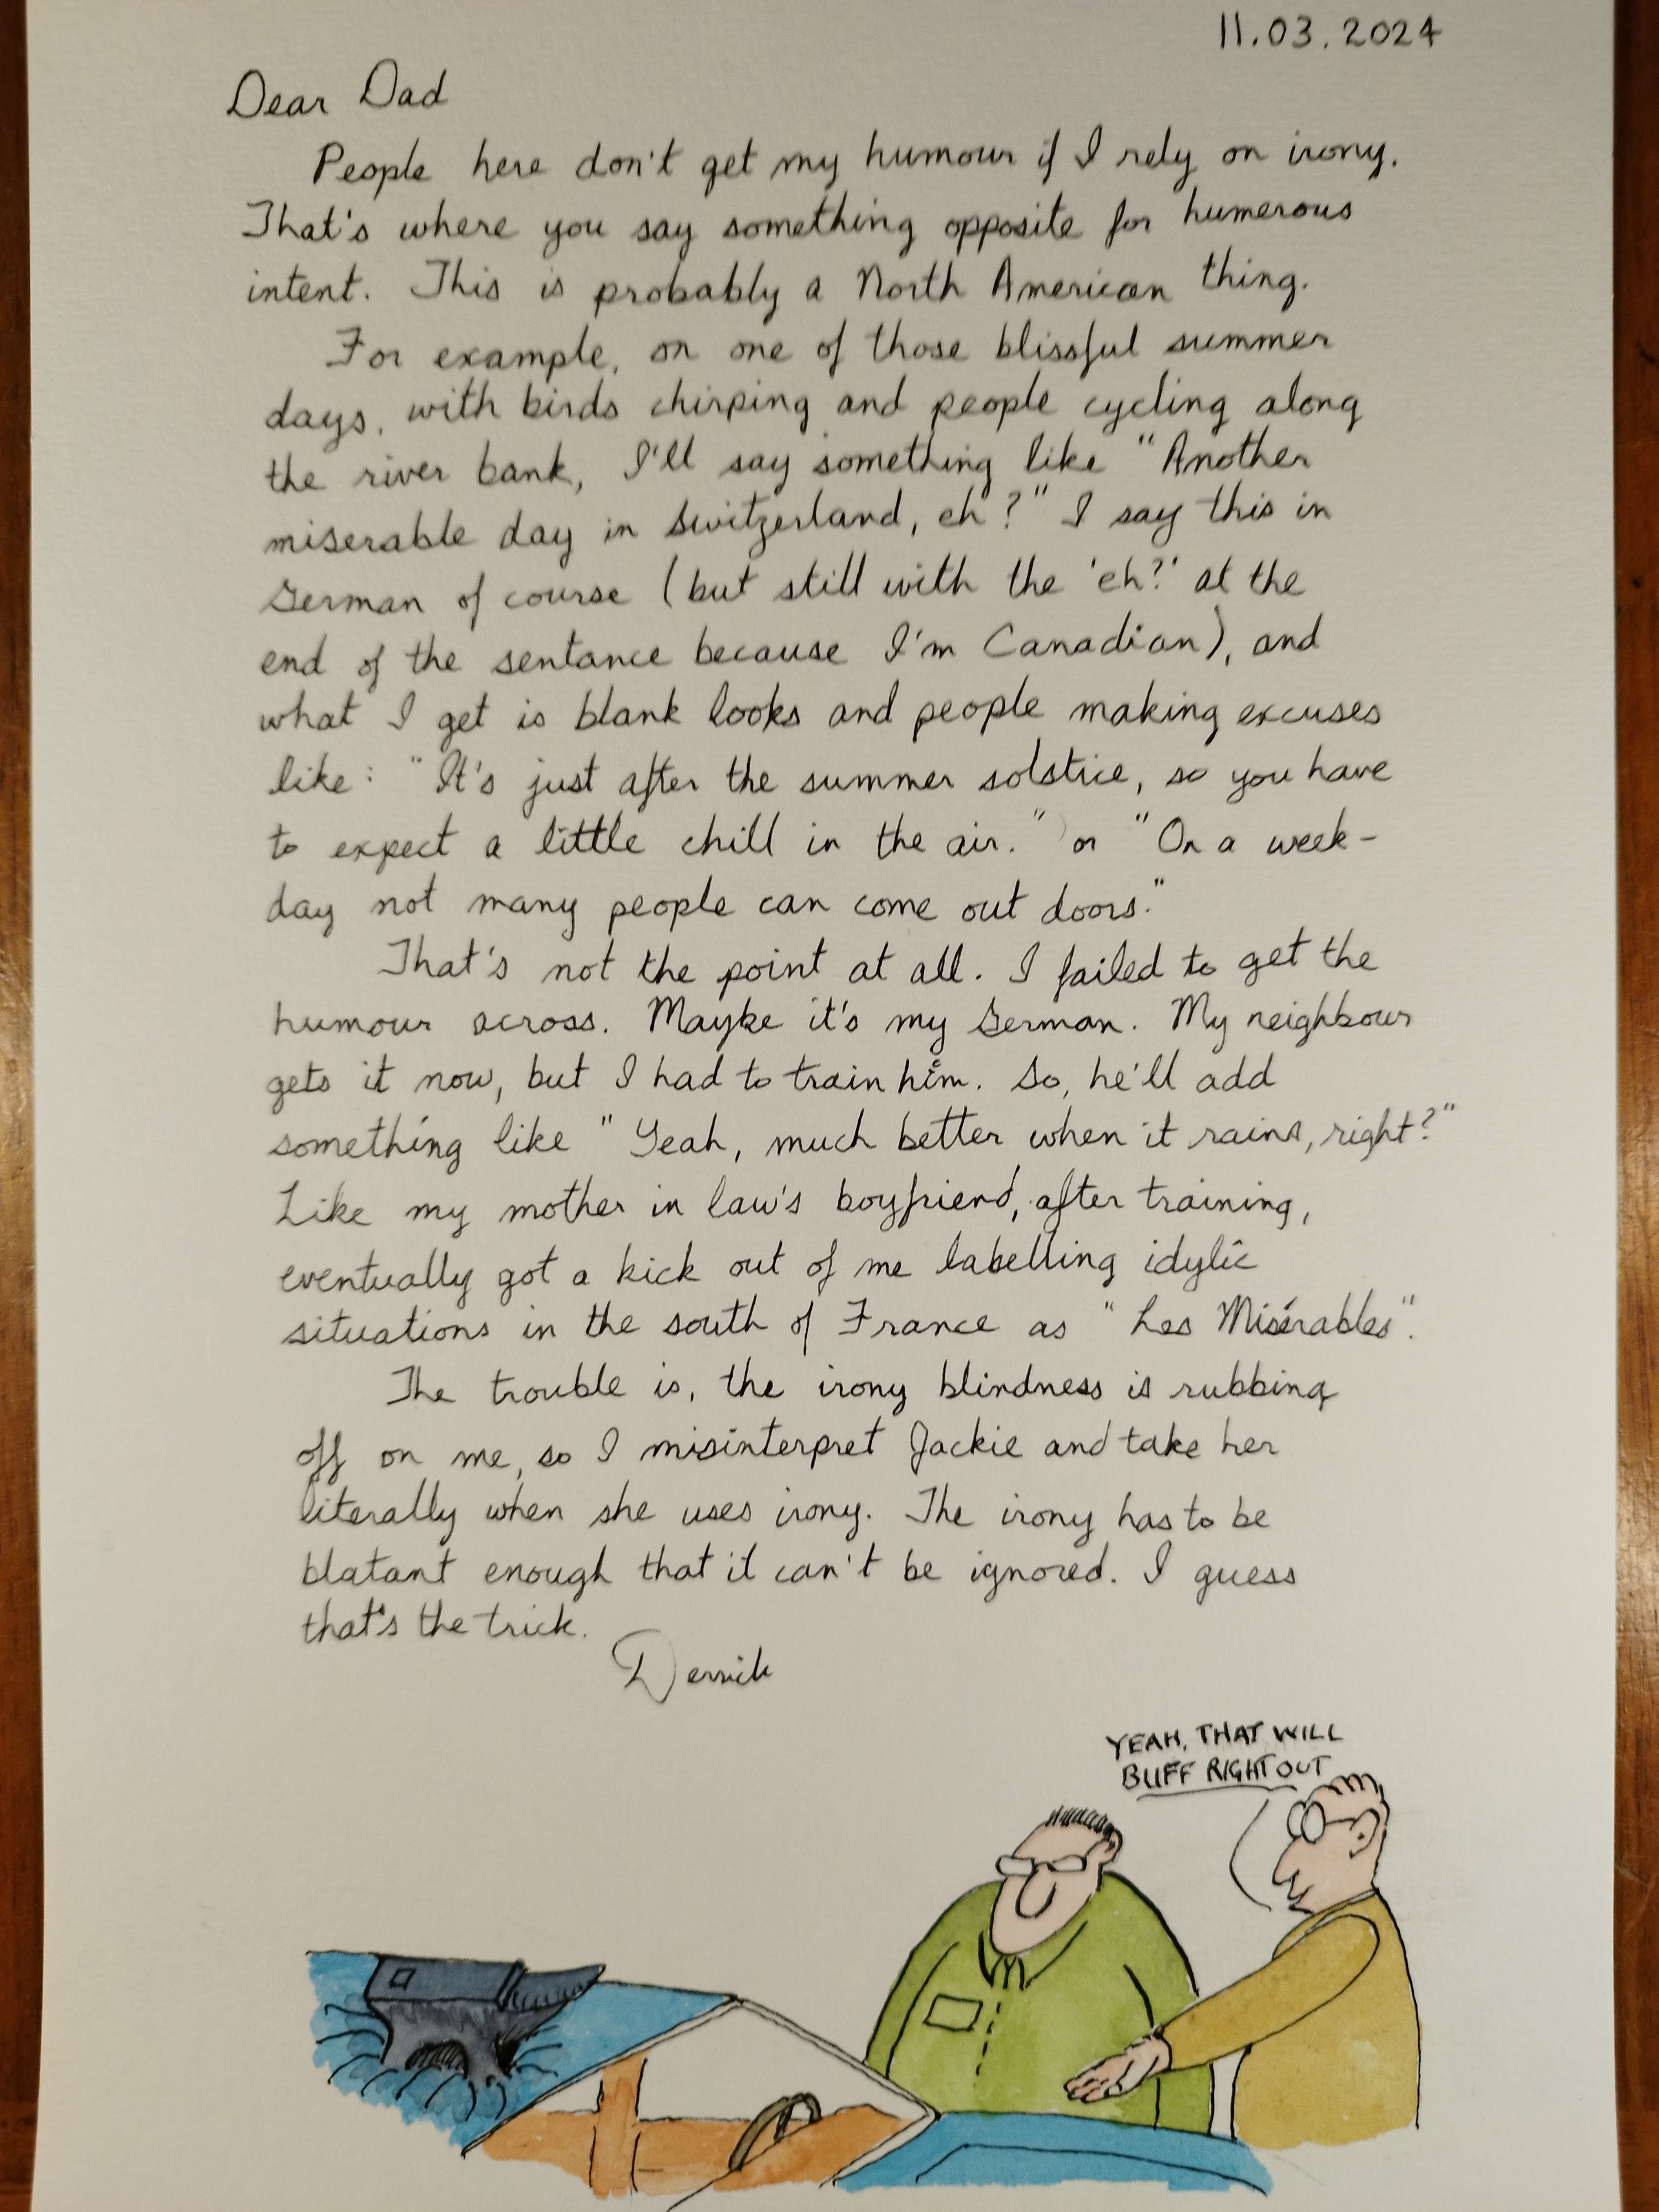 11.03.2024
Dear Dad
People here don't get my humour if I rely on irony.
That's where you say something opposite for humerous
intent. This is probably a North American thing.
For example, on one of those blissful summer
days, with birds chirping and people cycling along
the river bank, I'll say something like "Another
miserable day in Switzerland, eh?" I say this in
German of course (but still with the 'eh?' at the
end of the sentance because I'm Canadian), and
what I get is blank looks and people making excuses
like: "It's just after the summer solstice, so you have
to expect a little chill in the air." or "On a week-
day not many people can come out doors."
That's not the point at all. I failed to get the
humour across. Maybe it's my German. My neighbour
gets it now, but I had to train him. So, he'll add
something like "Yeah, much better when it rains, right?"
Like my mother in law's boyfriend, after training,
eventually got a kick out of me labelling idylic
situations in the south of France as "Les Misérables".
The trouble is, the irony blindness is rubbing
off on me, so I misinterpret Jackie and take her
literally when she uses irony. The irony has to be
blatant enough that it can't be ignored. I guess
that's the trick.
Derrick
YEAH, THAT WILL
BUFF RIGHT OUT